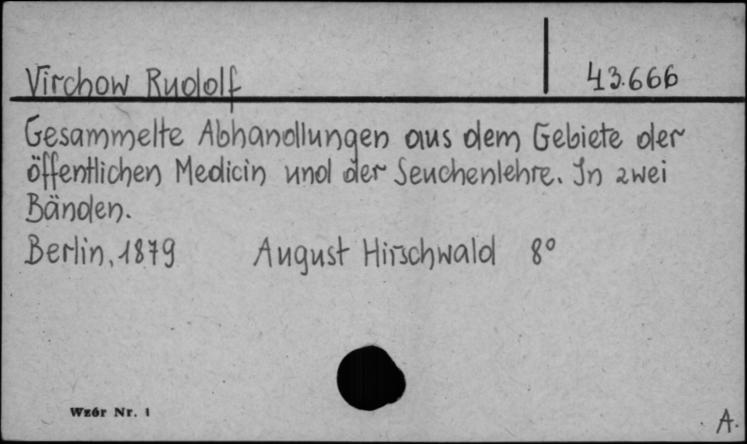 Virchow Rudolf 43.666
Gesammelte Abhandlungen aus dem Gebiete der
öffentlichen Medicin und der Seuchenlehre. In zwei
Bänden.
Berlin, 1879 August Hirschwald 8°
Wzór Nr. 1
A.